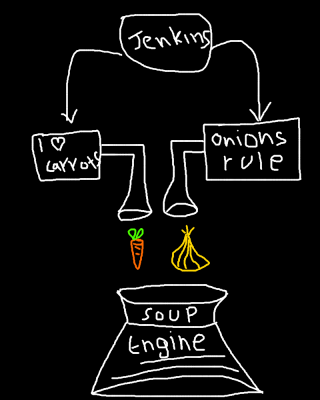 Jenkins
I ♡
carrots
onions
rule
soup
Engine